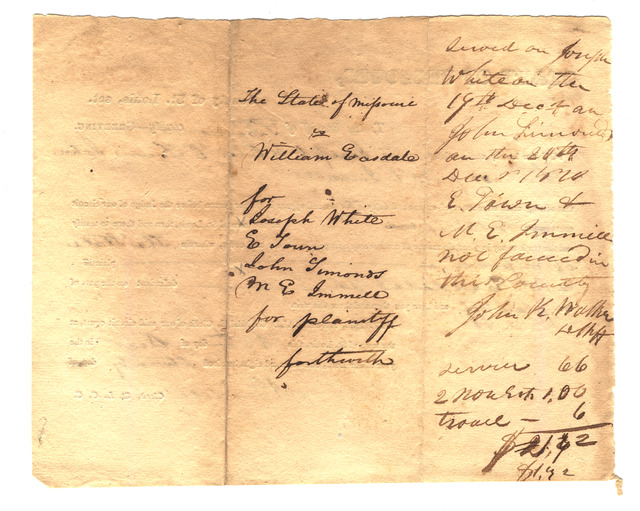 The State of Missouri
vs
William Easdale
for
Joseph White
E Town
John Simonds
M E Immell
for plaintiff
forthwith
Served on Joseph
White on the
19th Dec & on
John Simonds
on the 20th
Dec
E. Town &
M. E. Immell
not found in
this County
John K. Walker
D Shff
service 66
2 Non Ests 1.00
travel — 6
$1.72